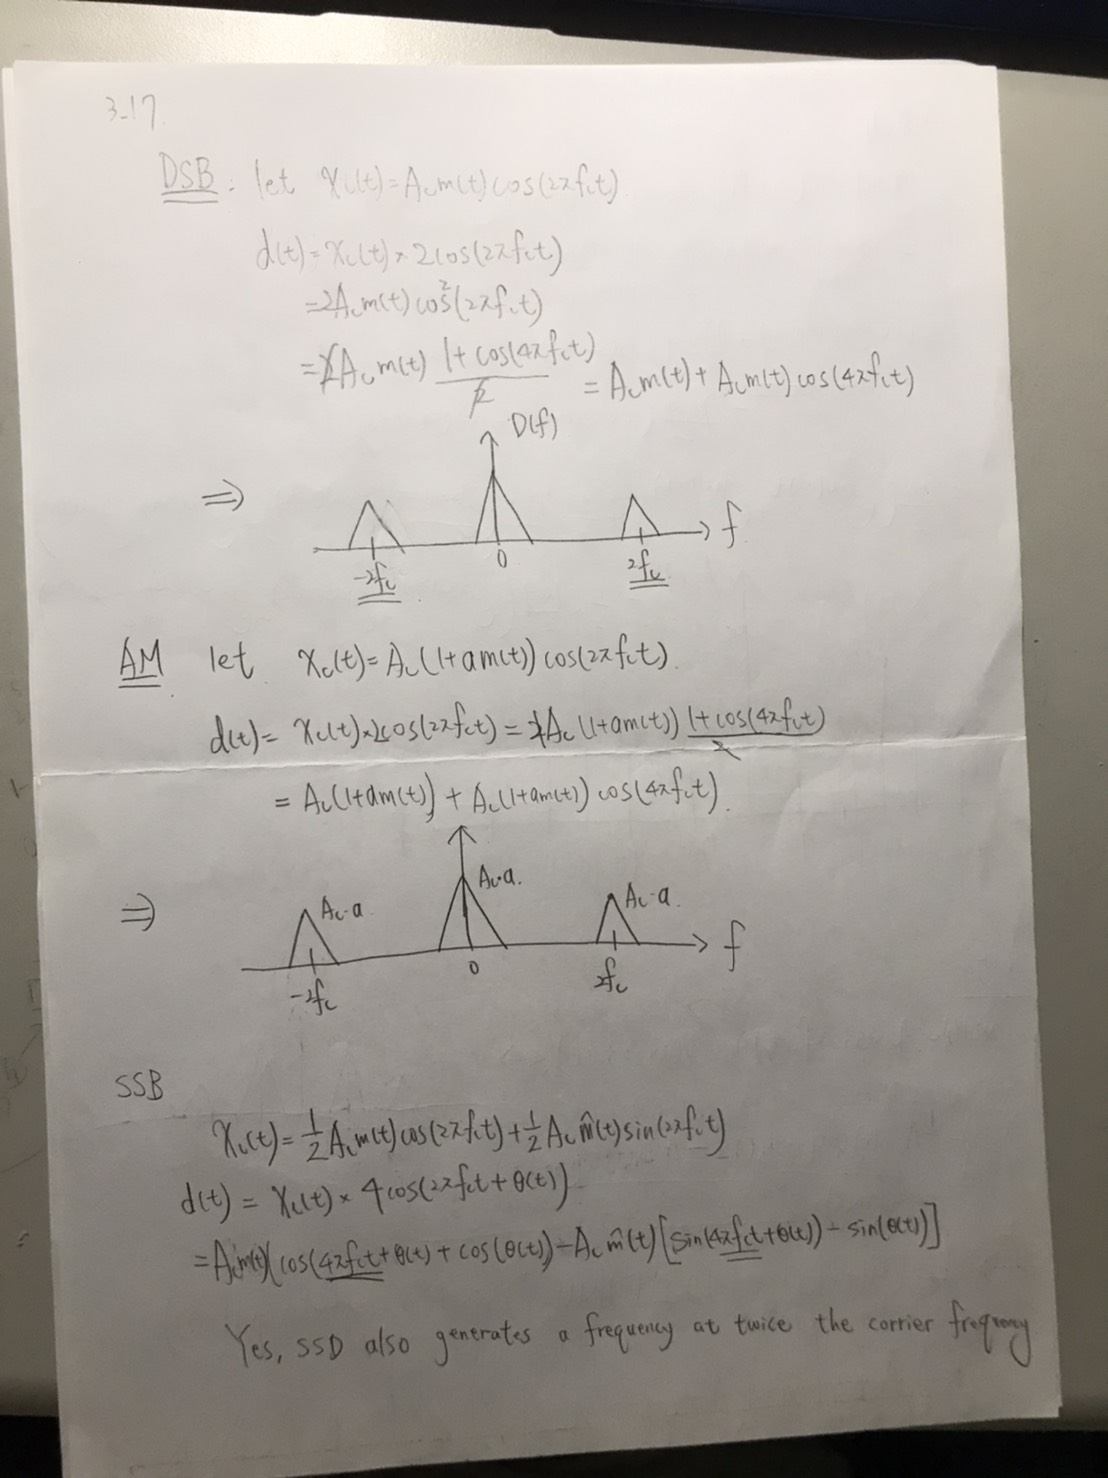 3-17.
DSB : let x_c(t)=A_c m(t) cos(2πf_c t).
d(t)=x_c(t)×2cos(2πf_c t)
=2A_c m(t) cos²(2πf_c t)
=2A_c m(t) (1+cos(4πf_c t))/2 = A_c m(t)+A_c m(t) cos(4πf_c t)
D(f)
⇒ f
-2f_c 0 2f_c
AM let x_c(t)=A_c(1+am(t)) cos(2πf_c t).
d(t)= x_c(t)×2cos(2πf_c t)=2A_c(1+am(t)) (1+cos(4πf_c t))/2
= A_c(1+am(t))+A_c(1+am(t)) cos(4πf_c t).
⇒ A_c·a A_c·a. A_c·a. f
-2f_c 0 2f_c
SSB
x_c(t)=1/2 A_c m(t) cos(2πf_c t)+1/2 A_c m̂(t) sin(2πf_c t)
d(t) = x_c(t)×4cos(2πf_c t+θ(t))
=A_c m(t)(cos(4πf_c t+θ(t)+cos(θ(t))-A_c m̂(t)[sin(4πf_c t+θ(t))-sin(θ(t))]
Yes, SSD also generates a frequency at twice the corrier freqency